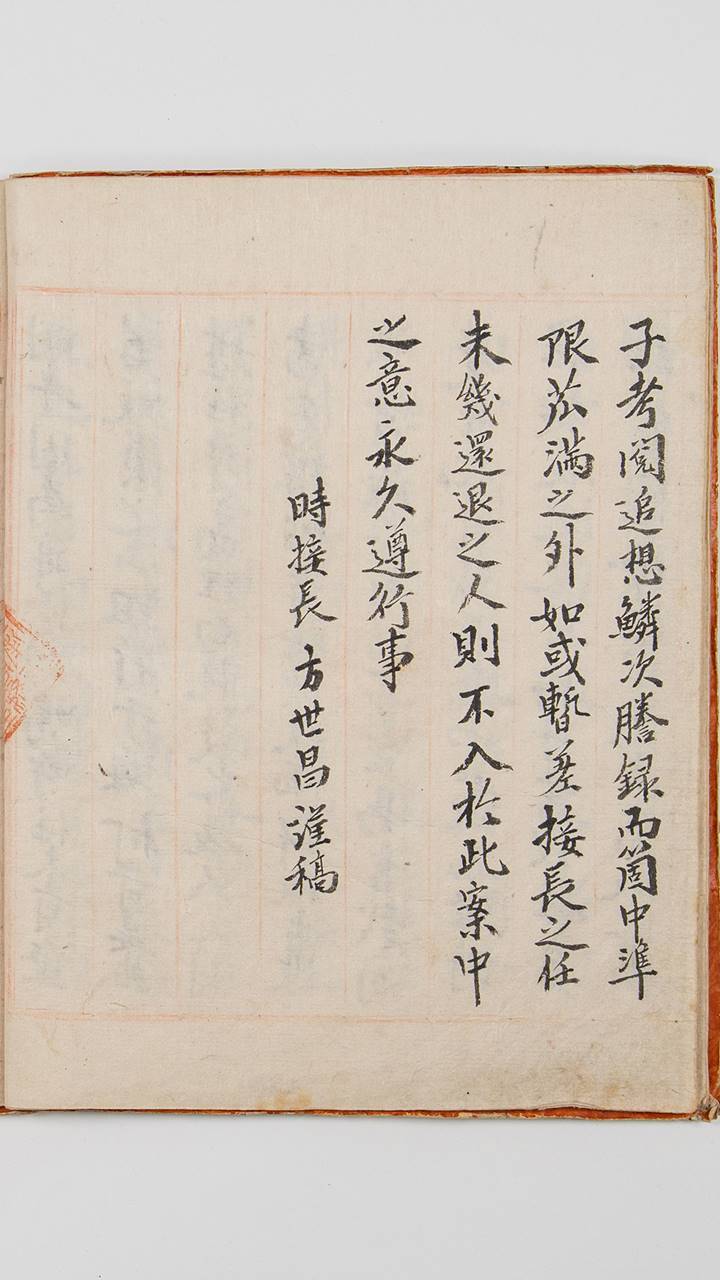 子考閲追想鱗次謄録而箇中準
限苽滿之外如或暫差接長之任
未幾還退之人則不入於此案中
之意永久遵行事
時接長 方世昌 謹稿